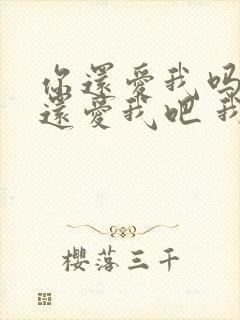 你還愛我嗎
還愛我吧 我
櫻落三千